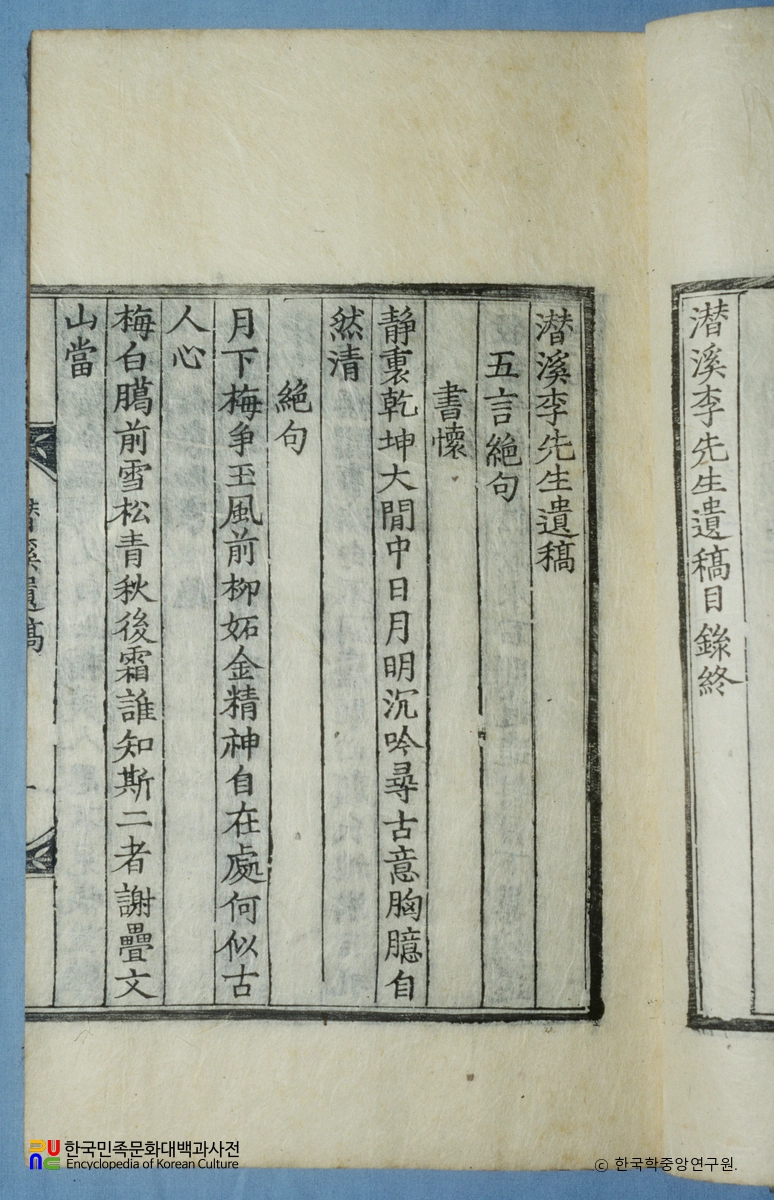 潛溪李先生遺稿目錄終
潛溪李先生遺稿
五言絕句
書懷
靜裏乾坤大閒中日月明沉吟尋古意胸臆自
然清
絕句
月下梅爭玉風前柳妬金精神自在處何似古
人心
梅白臈前雪松青秋後霜誰知斯二者謝疊文
山當
潛溪遺稿
한국민족문화대백과사전
Encyclopedia of Korean Culture
© 한국학중앙연구원.